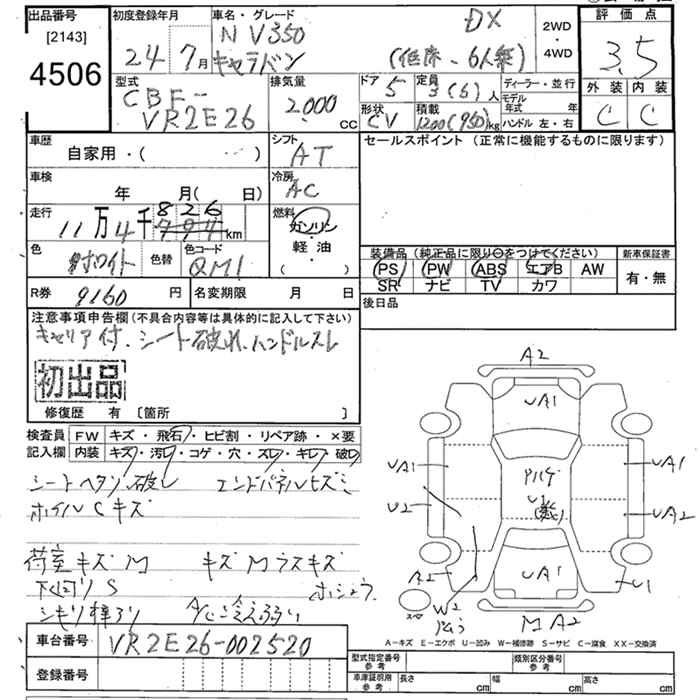 出品番号
[2143]
4506
初度登録年月
24年 7月
車名・グレード
NV350
キャラバン
DX
(低床・6人乗)
2WD
・
4WD
評価点
3.5
外装 内装
C C
型式
CBF-
VR2E26
排気量
2,000 cc
ドア 5
形状 CV
定員
3(6)人
積載
1200(950)kg
ディーラー・並行
モデル年式 年
ハンドル 左・右
車歴
自家用・( )
シフト
AT
セールスポイント(正常に機能するものに限ります)
車検
年 月( 日)
冷房
AC
走行
11万4千826
794 km
燃料
ガソリン
・
軽・油
( )
色
ホワイト
色替
色コード
QM1
装備品(純正品に限り○をつけてください)
PS PW ABS エアB AW
SR ナビ TV カワ
新車保証書
有・無
R券 9160 円
名変期限 月 日
後日品
注意事項申告欄(不具合内容等は具体的に記入して下さい)
キャリア付、シート破れ、ハンドルスレ
初出品
修復歴 有 [箇所 ]
検査員
記入欄
FW キズ・飛石・ヒビ割・リペア跡・×要
内装 キズ・汚レ・コゲ・穴・スレ・キレ・破レ
シートヘタリ、破レ エンドパネルヒズミ
ホイルCキズ
荷室キズM キズMラスキズ
下回りS
A/C冷え弱い
A2
UA1
UA1
U2
UA1
UA2
UA1
A2
W2
U1
M A2
スペア
A-キズ E-エクボ U-凹み W-補修跡 S-サビ C-腐食 XX-交換済
車台番号
VR2E26-002520
登録番号
型式指定番号
参考
類別区分番号
参考
車庫証明用
参考
長さ cm 幅 cm 高さ cm